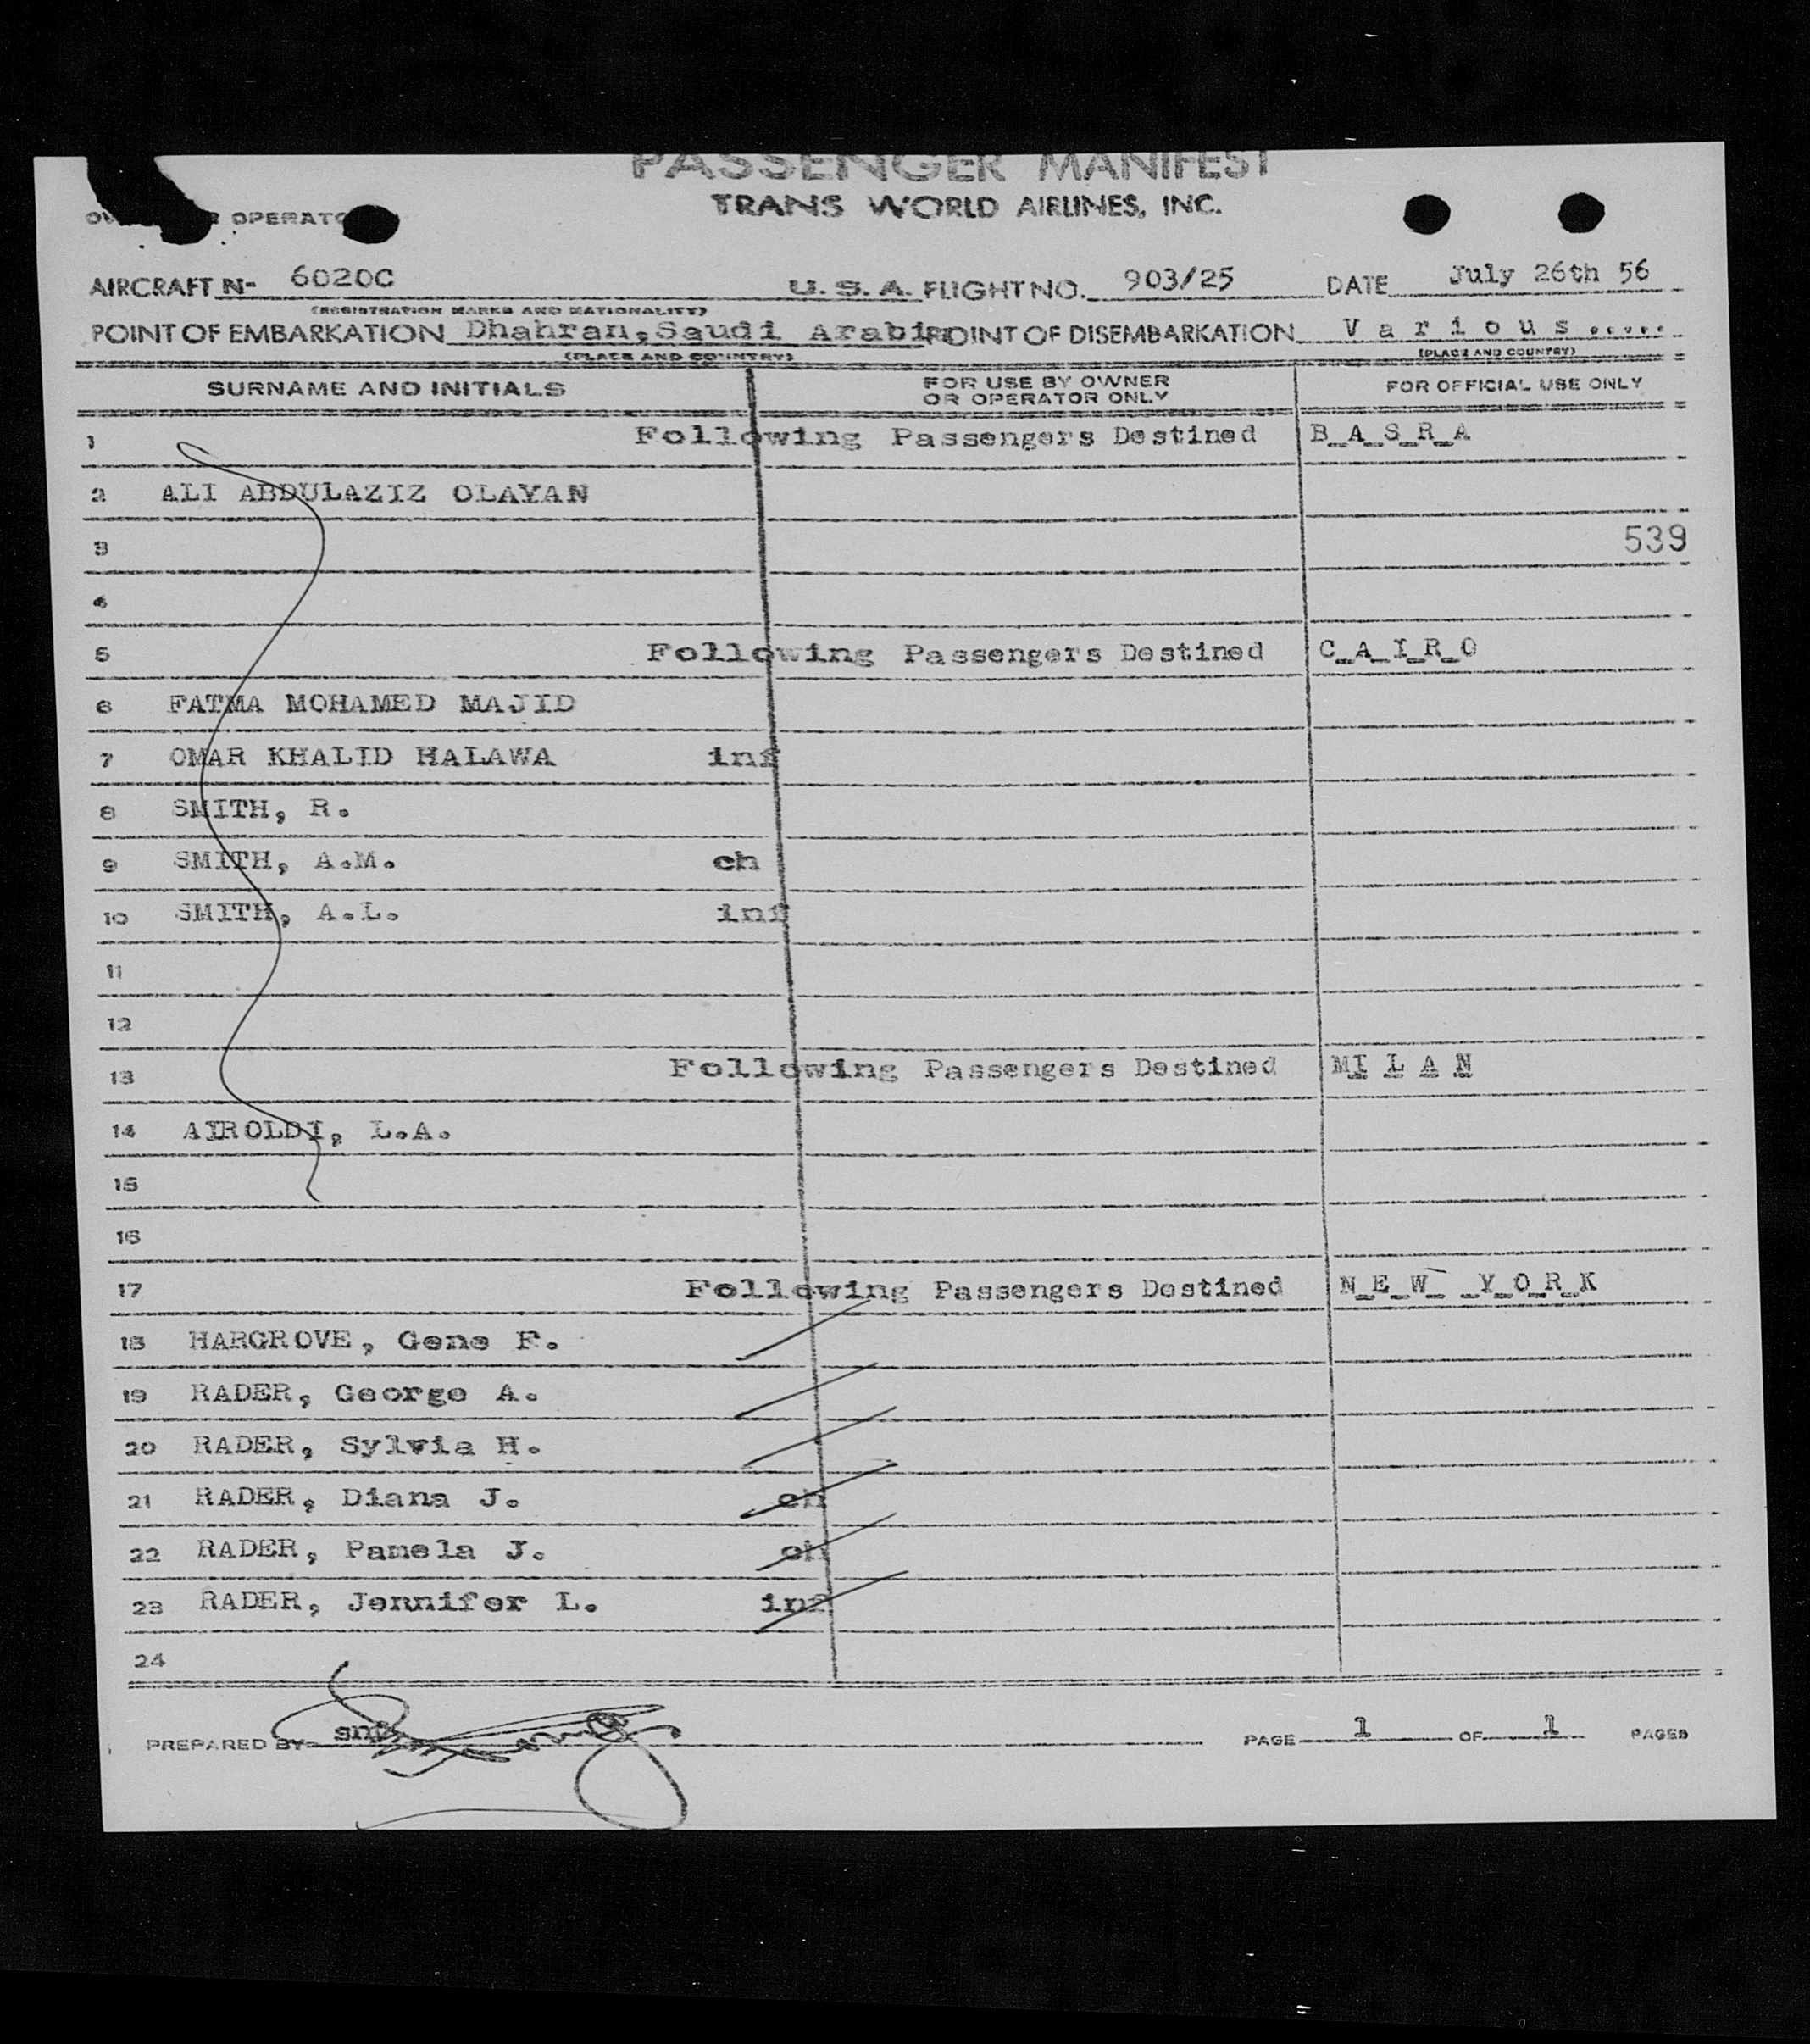 PASSENGER MANIFEST
TRANS WORLD AIRLINES, INC.
OPERATOR
AIRCRAFT N- 6020C U. S. A. FLIGHT NO. 903/25 DATE July 26th 56
(REGISTRATION MARKS AND NATIONALITY)
POINT OF EMBARKATION Dhahran,Saudi Arabia POINT OF DISEMBARKATION V a r i o u s .....
(PLACE AND COUNTRY) (PLACE AND COUNTRY)
SURNAME AND INITIALS FOR USE BY OWNER OR OPERATOR ONLY FOR OFFICIAL USE ONLY
1 Following Passengers Destined B_A_S_R_A
2 ALI ABDULAZIZ OLAYAN
3 539
4
5 Following Passengers Destined C_A_I_R_O
6 FATMA MOHAMED MAJID
7 OMAR KHALID HALAWA inf
8 SMITH, R.
9 SMITH, A.M. ch
10 SMITH, A.L. inf
11
12
13 Following Passengers Destined MI L A N
14 AIROLDI, L.A.
15
16
17 Following Passengers Destined N_E_W_ _Y_O_R_K
18 HARGROVE, Gene F.
19 RADER, George A.
20 RADER, Sylvia H.
21 RADER, Diana J. ch
22 RADER, Pamela J. ch
23 RADER, Jennifer L. inf
24
PREPARED BY PAGE 1 OF 1 PAGES